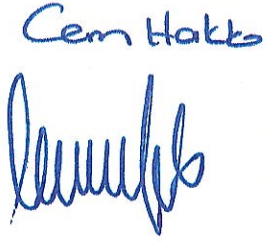 Cem Hakko